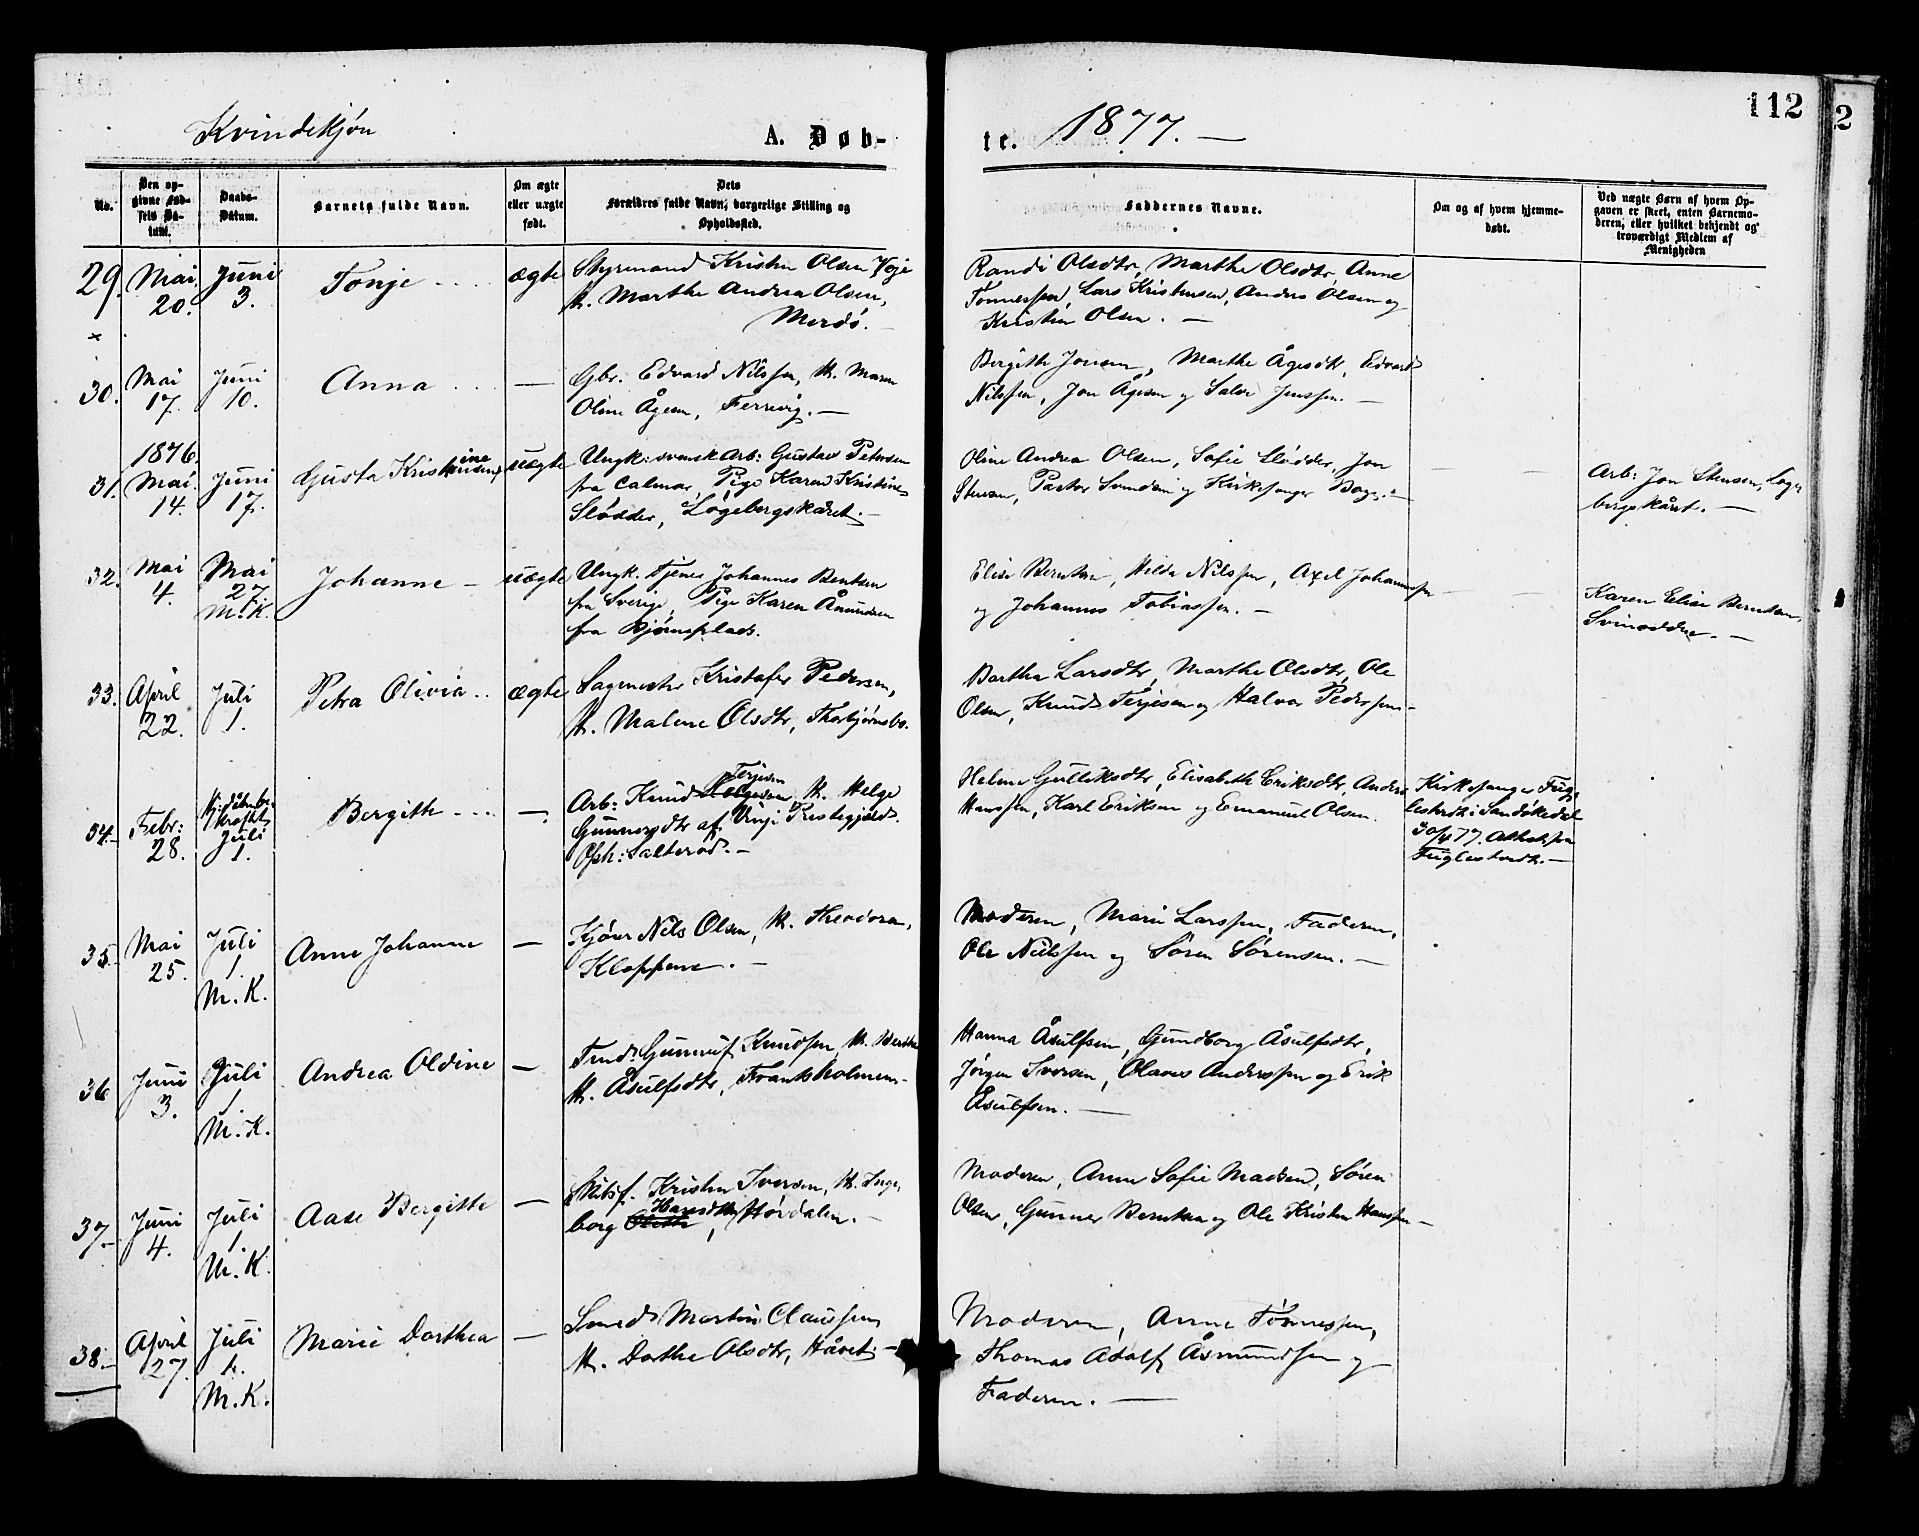 112
2
Kvindekjøn
A. Døb-
te. 1877. —
No.
Den op-
givne Fød-
sels Da-
tum.
Daabs-
Datum.
Barnets fulde Navn.
Om ægte
eller uægte
født.
Dets
Forældres fulde Navn, borgerlige Stilling og
Opholdssted.
Faddernes Navne.
Om og af hvem hjemme-
døbt.
Ved uægte Børn af hvem Op-
gaven er skeet, enten Barnemo-
deren, eller hvilket bekjendt og
troværdigt Medlem af
Menigheden
29.
Mai
20.
Juni
3.
Tonje
ægte
Styrmand Kristen Olsen Veje
H. Marthe Andrea Olsen,
Merdö.
Randi Olsdtr, Marthe Olsdtr, Anne
Tönnessen, Lars Kristensen, Anders Olsen og
Kristen Olsen. —
30.
Mai
17.
Juni
10.
Anna
—
Gbr. Edvard Nilssen, H. Maren
Oline Ågesen, Ferrevig. —
Bergithe Jonsen, Marthe Ågesdtr, Edvard
Nilssen, Jon Ågesen og Salve Jenssen. —
31.
1876.
Mai
14.
Juni
17.
Gusta Kristine
uægte
Ungk: svensk Arb: Gustav Petersen
fra Calmar, Pige Karen Kristine
Slødder, Løgebergskåret. —
Oline Andrea Olsen, Sofie Slødder, Jon
Stensen, Pastor Svendsen og Kirkesanger Bage. —
Arb: Jon Stensen, Løge
bergskåret. —
32.
Mai
4.
Mai
27.
M.K.
Johanne —
uægte
Ungk. Tjener Johannes Bentsen
fra Sverige, Pige Karen Åsmundsen
fra Bjørnsplads.
Elise Berntsen, Hilda Nilssen, Axel Johannessen
og Johannes Tobiassen. —
Karen Elise Berntsen,
Svinodden. —
33.
April
22.
Juli
1.
Petra Olivia
ægte
Sagmester Kristofer Pedersen,
H. Malene Olsdtr, Thorbjørnsbo.
Berthe Larsdtr, Marthe Olsdtr, Ole
Olsen, Knud Terjesen og Halvor Pederssen. —
34.
Febr:
28.
Juli
1.
Bergithe
—
Arb: Knud Terjesen H. Helge
Gunnersdtr af Vinje Prestegjeld.
Oph: Salterød. —
Helene Gulliksdtr, Elisabeth Eriksdtr, Anders
Hanssen, Karl Eriksen og Emanuel Olsen.
Kirkesanger Fug-
lestvedt i Sandøkedal
30/4 77. Attest fra
Fuglestvedt. —
35.
Mai
25.
Juli
1.
M.K.
Anne Johanne
—
Kjører Nils Olsen, H. Theodora,
Kloppene. —
Moderen, Marie Larssen, Faderen,
Ole Nielssen og Søren Sørensen. —
36
Juni
3.
Juli
1.
M.K.
Andrea Oldine
—
Gunnuf Knudsen, H. Berthe
M. Åsulfsdtr, Franksholmen. —
Hanna Åsulfsen, Gundborg Åsulfsdtr,
Jørgen Iversen, Olaves Anderssen og Erik
Åsulfsen. —
37.
Juni
4.
Juli
1.
M.K.
Aase Bergitte
—
Skibsf. Kristen Iversen, H. Inge
borg Hansdtr, Hövdalen. —
Moderen, Anne Sofie Madsen, Søren
Olsen, Gunner Berntsen og Ole Kristen Hanssen. —
38.
April
27.
Juli
1.
M.K.
Marie Dorthea
—
Smed Martin Claussen,
H. Dorthe Olsdtr, Håvet. —
Moderen, Anne Tönnessen,
Thomas Adolf Åsmundsen og
Faderen. —